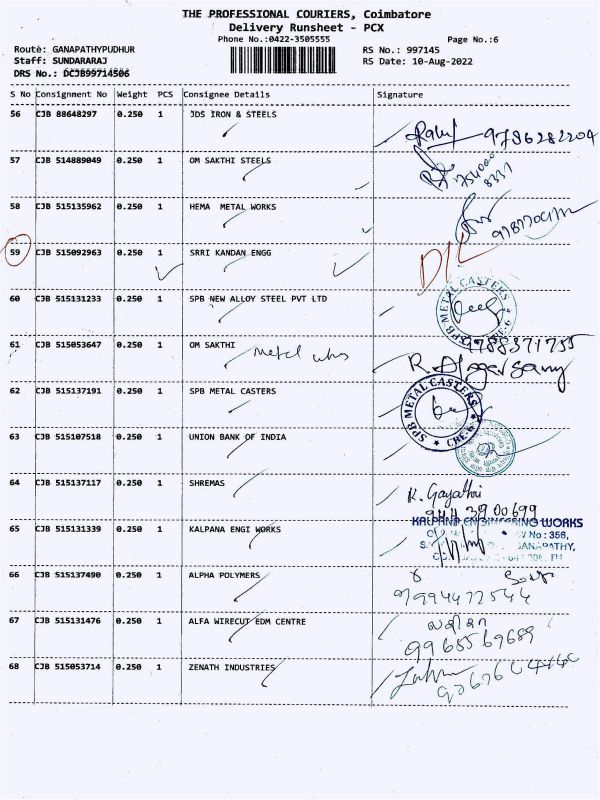 THE PROFESSIONAL COURIERS, Coimbatore
Delivery Runsheet - PCX
Phone No.:0422-3505555
Page No.:6
Route: GANAPATHYPUDHUR
RS No.: 997145
Staff: SUNDARARAJ
RS Date: 10-Aug-2022
DRS No.: DCJB99714506
S No Consignment No Weight PCS Consignee Details Signature
56 CJB 88648297 0.250 1 JDS IRON & STEELS
9786282204
57 CJB 514889049 0.250 1 OM SAKTHI STEELS
58 CJB 515135962 0.250 1 HEMA METAL WORKS
59 CJB 515092963 0.250 1 SRRI KANDAN ENGG
D/L
60 CJB 515131233 0.250 1 SPB NEW ALLOY STEEL PVT LTD
SPB METAL CASTERS
61 CJB 515053647 0.250 1 OM SAKTHI
9788371755
62 CJB 515137191 0.250 1 SPB METAL CASTERS
SPB METAL CASTERS CBE-6
63 CJB 515107518 0.250 1 UNION BANK OF INDIA
64 CJB 515137117 0.250 1 SHREMAS
K. Gayathri
944 39 00699
65 CJB 515131339 0.250 1 KALPANA ENGI WORKS
KALPANA ENGINEERING WORKS
No : 356,
GANAPATHY,
66 CJB 515137490 0.250 1 ALPHA POLYMERS
9994472544
67 CJB 515131476 0.250 1 ALFA WIRECUT EDM CENTRE
9965569689
68 CJB 515053714 0.250 1 ZENATH INDUSTRIES